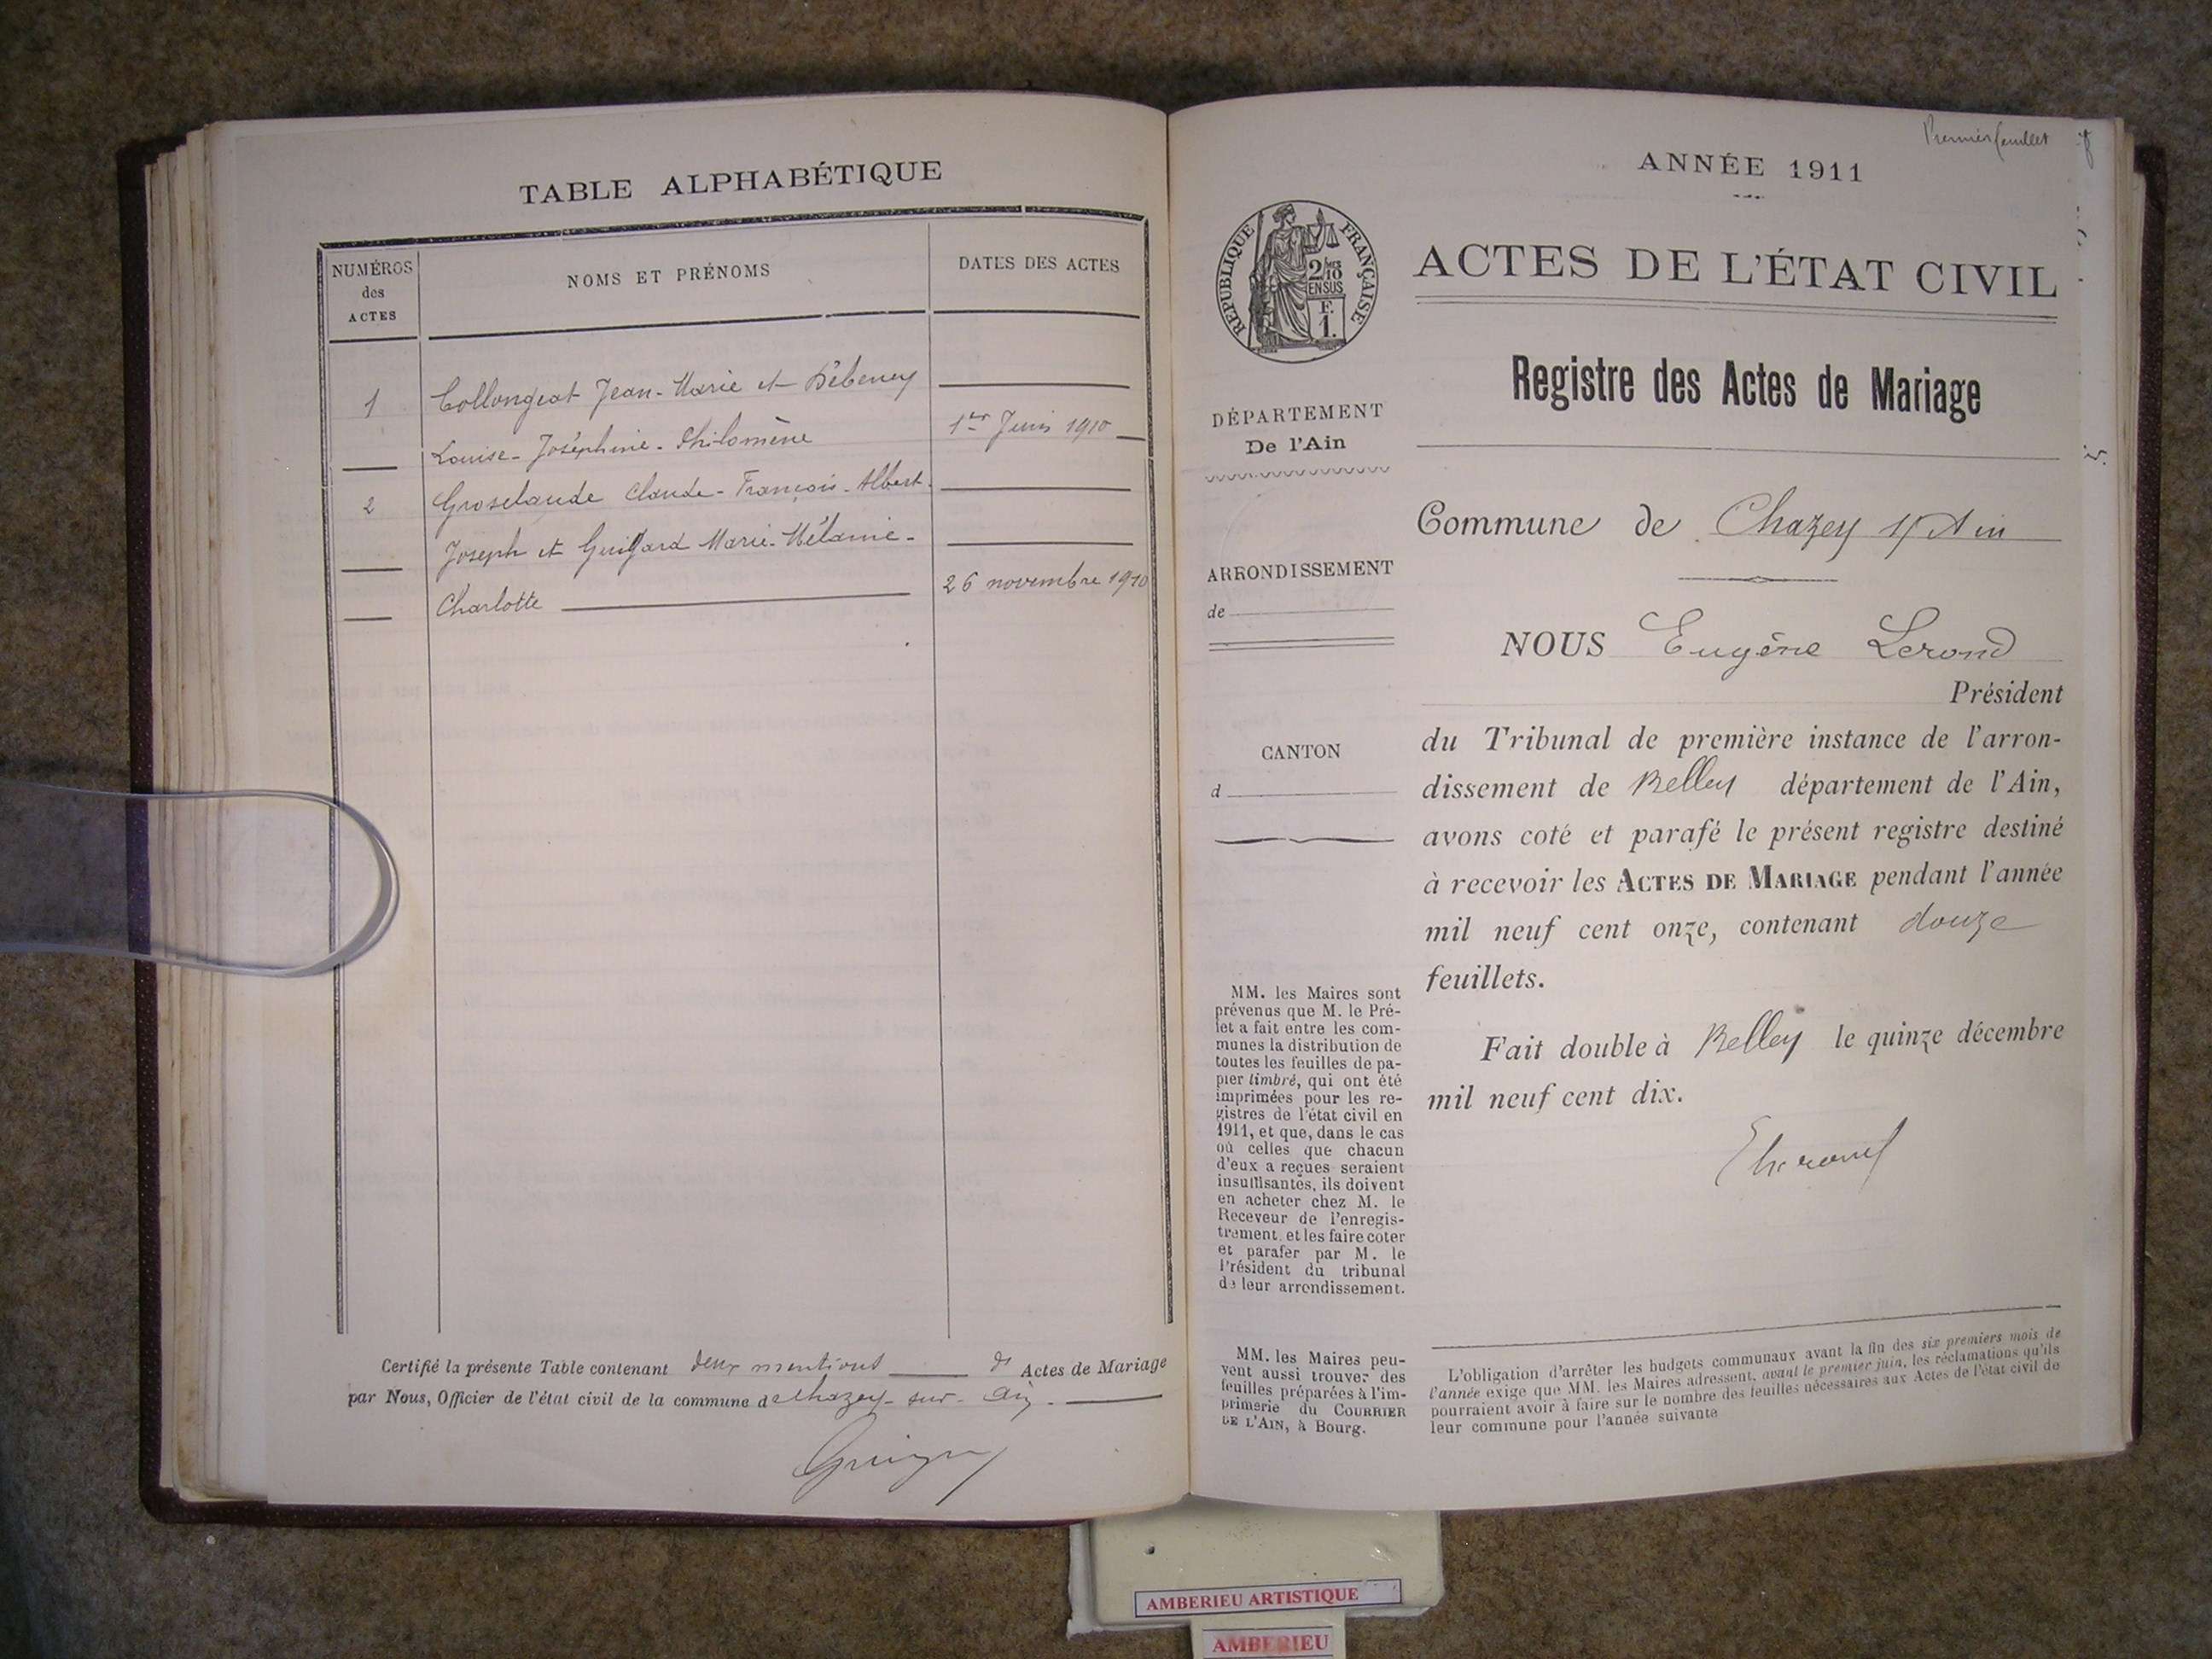 TABLE ALPHABÉTIQUE
NUMÉROS
des
ACTES
NOMS ET PRÉNOMS
DATES DES ACTES
1 Collongeat Jean-Marie et Débeney
Louise-Joséphine-Philomène 1er Juin 1910
2 Groselaude Claude-François-Albert
Joseph et Guigard Marie-Mélanie-
Charlotte 26 novembre 1910
Certifié la présente Table contenant deux mentions d' Actes de Mariage
par Nous, Officier de l'état civil de la commune de Chazey-sur-Ain.
Premier feuillet
ANNÉE 1911
RÉPUBLIQUE FRANÇAISE
2/10
EN SUS
F.
1.
ACTES DE L'ÉTAT CIVIL
Registre des Actes de Mariage
DÉPARTEMENT
De l'Ain
Commune de Chazey s/ Ain
ARRONDISSEMENT
de
NOUS Eugène Lerond
Président
CANTON
d
du Tribunal de première instance de l'arron-
dissement de Belley département de l'Ain,
avons coté et parafé le présent registre destiné
à recevoir les ACTES DE MARIAGE pendant l'année
mil neuf cent onze, contenant douze
feuillets.
Fait double à Belley le quinze décembre
mil neuf cent dix.
MM. les Maires sont
prévenus que M. le Pré-
fet a fait entre les com-
munes la distribution de
toutes les feuilles de pa-
pier timbré, qui ont été
imprimées pour les re-
gistres de l'état civil en
1911, et que, dans le cas
où celles que chacun
d'eux a reçues seraient
insuffisantes, ils doivent
en acheter chez M. le
Receveur de l'enregis-
trement, et les faire coter
et parafer par M. le
Président du tribunal
de leur arrondissement.
MM. les Maires peu-
vent aussi trouver des
feuilles préparées à l'im-
primerie du COURRIER
DE L'AIN, à Bourg.
L'obligation d'arrêter les budgets communaux avant la fin des six premiers mois de
l'année exige que MM. les Maires adressent, avant le premier juin, les réclamations qu'ils
pourraient avoir à faire sur le nombre des feuilles nécessaires aux Actes de l'état civil de
leur commune pour l'année suivante
AMBERIEU ARTISTIQUE
AMBERIEU